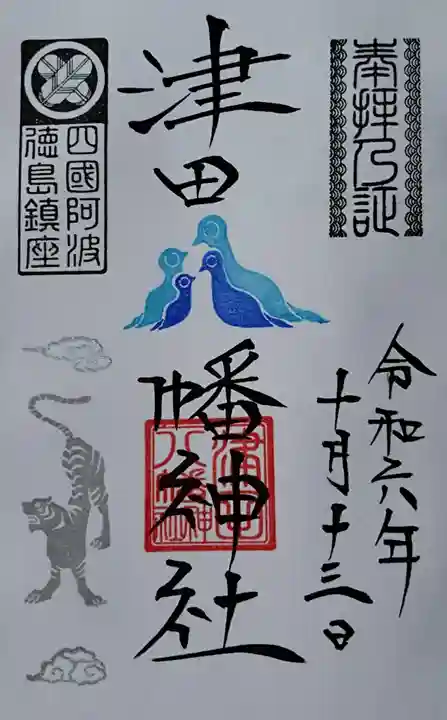 奉拝乃証
令和六年
十月十三日
津田
幡神社
津田
八幡神
社
四國阿波
徳島鎮座